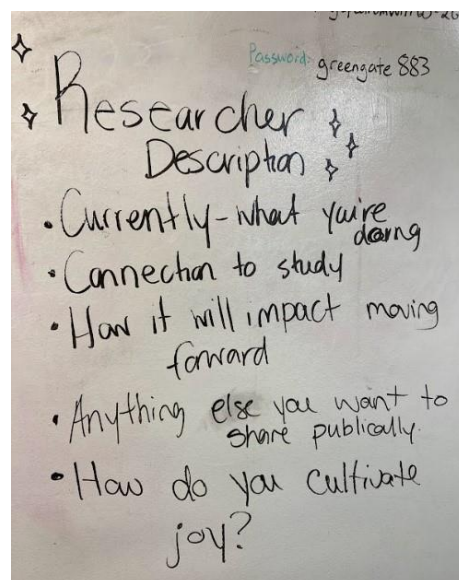 Password: greengate 883
Researcher
Description
• Currently - what you're
doing
• Connection to study
• How it will impact moving
forward
• Anything else you want to
share publically.
• How do you cultivate
joy?